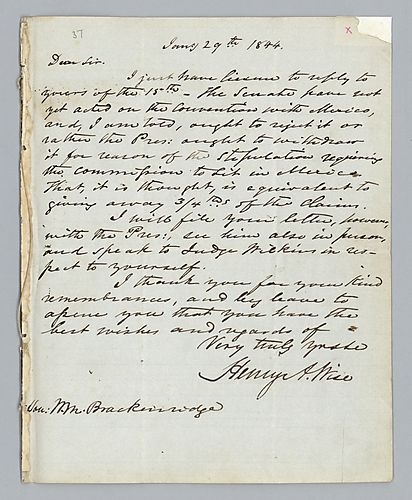 37
x
Jany 29th 1844.
Dear Sir.
I just have leisure to reply to
yours of the 15th - The Senate have not
yet acted on the Convention with Mexico,
and, I am told, ought to reject it or
rather the Pres: ought to withdraw
it for reason of the stipulation requiring
the commission to sit in Mexico
That, it is thought, is equivalent to
giving away 3/4ths of the claims.
I will file your letter, however,
with the Pres:, see him also in person,
and speak to Judge Wilkins in res-
pect to yourself.
I thank you for your kind
remembrances, and beg leave to
assure you that you have the
best wishes and regards of
Very truly yours
Henry A. Wise
Hon: H.M. Brackinridge